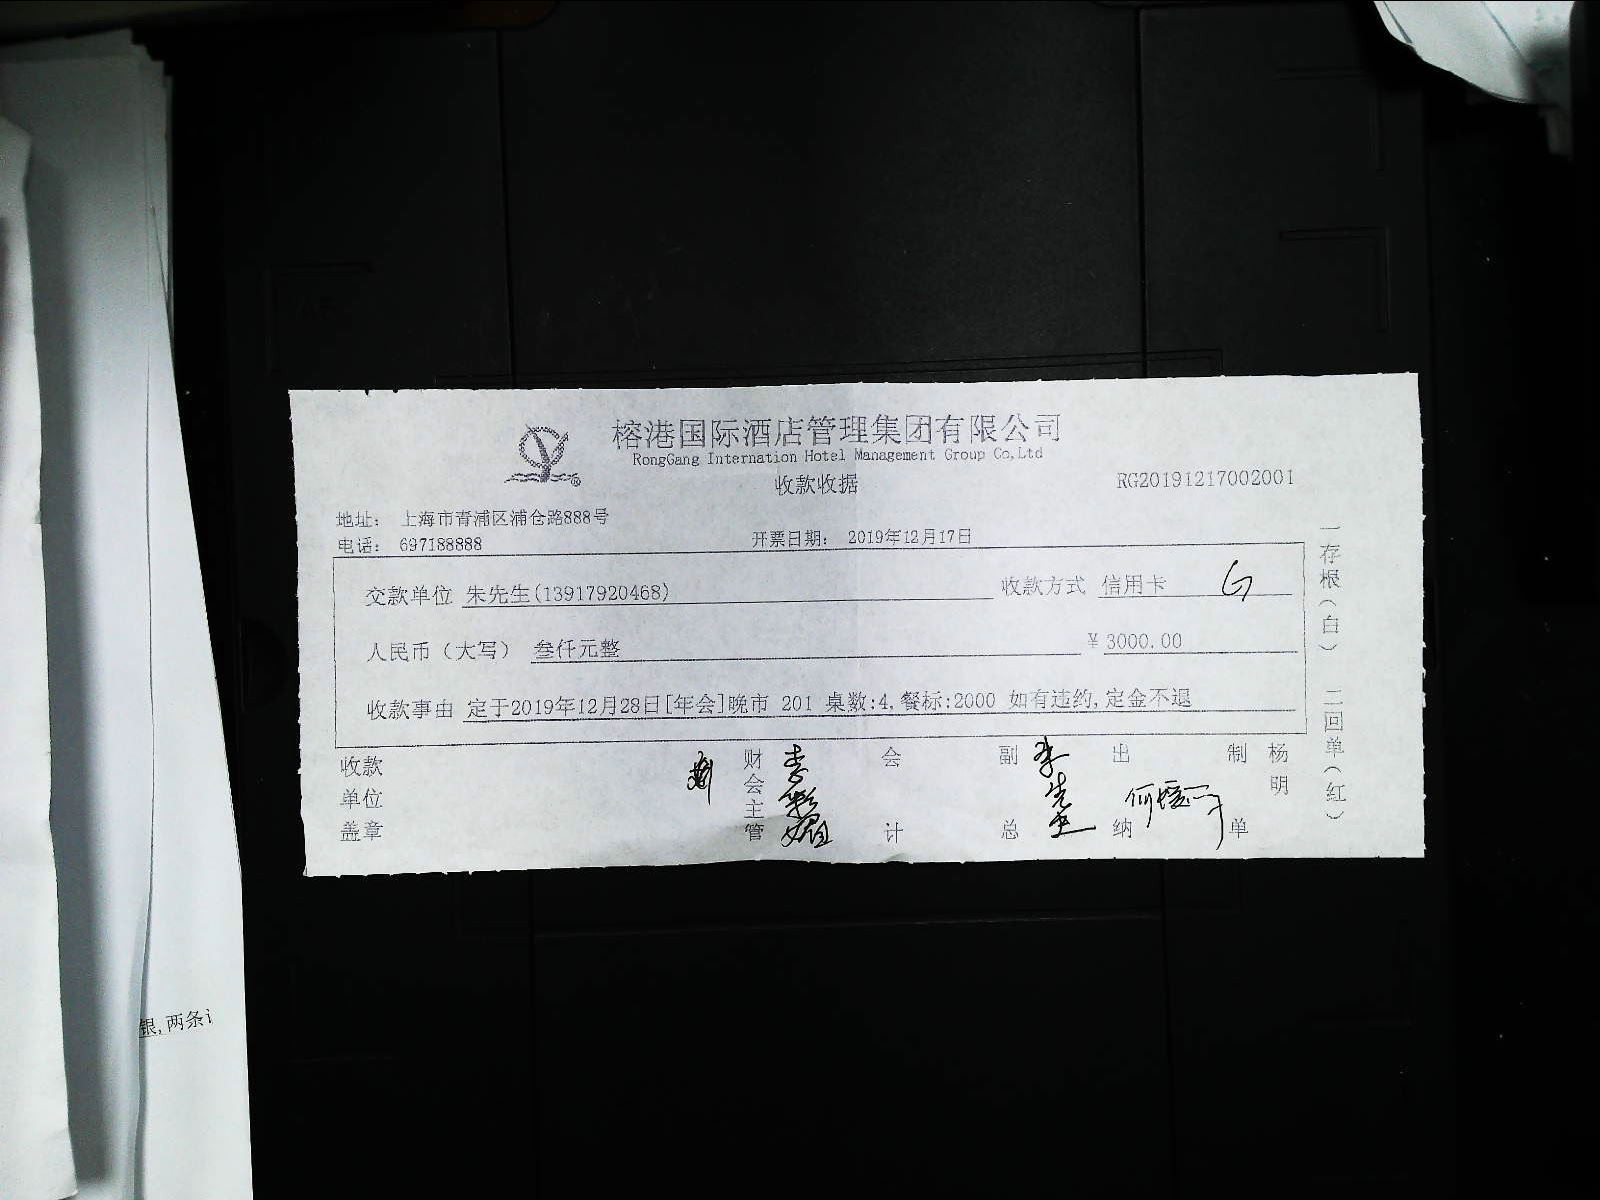 榕港国际酒店管理集团有限公司
RongGang Internation Hotel Management Group Co,Ltd
收款收据
RG20191217002001
地址: 上海市青浦区浦仓路888号
电话: 697188888
开票日期: 2019年12月17日
交款单位 朱先生(13917920468) 收款方式 信用卡
人民币(大写) 叁仟元整 ¥3000.00
收款事由 定于2019年12月28日[年会]晚市 201 桌数:4,餐标:2000 如有违约,定金不退
收款单位盖章
财会主管 李彩媚
会计
副总
出纳
制单 杨明
一存根(白) 二回单(红)
银,两条i